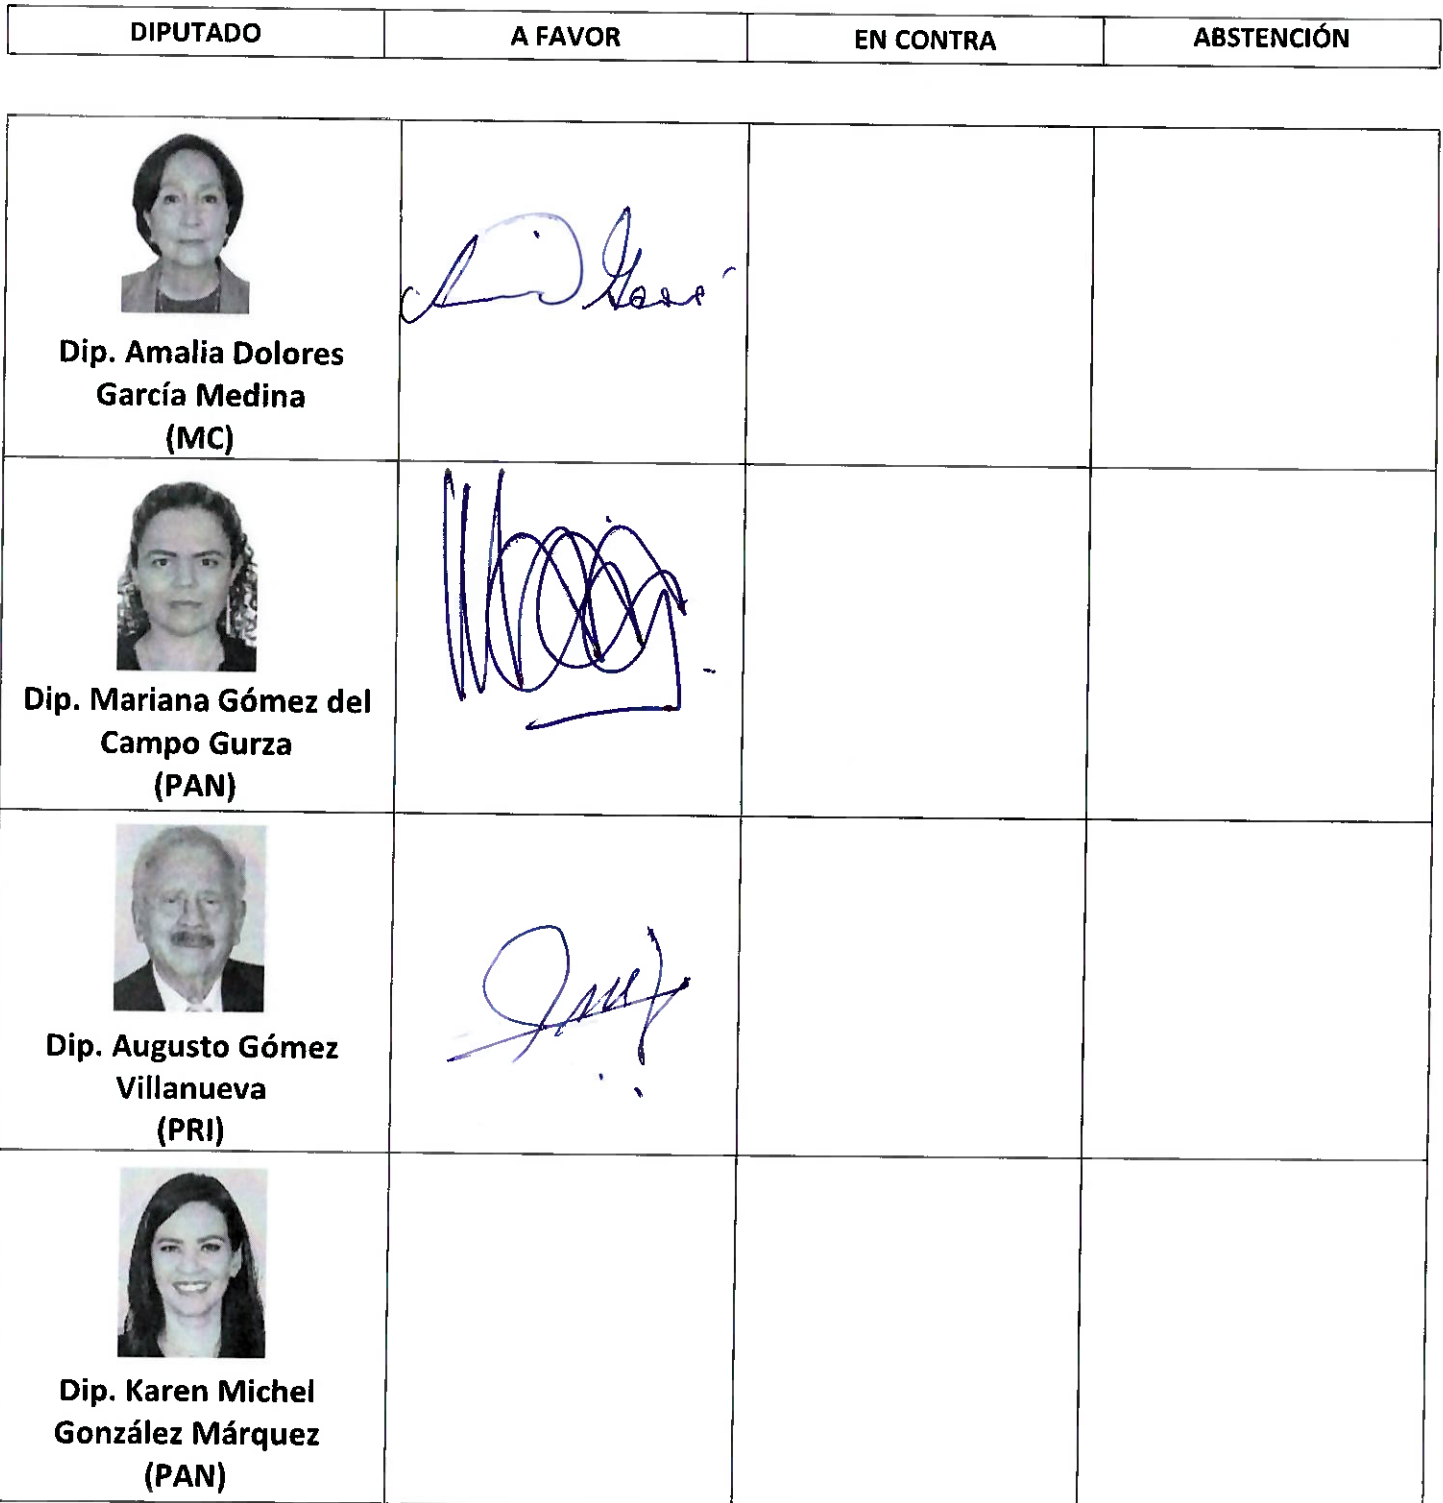 DIPUTADO A FAVOR EN CONTRA ABSTENCIÓN
Dip. Amalia Dolores
García Medina
(MC)
Dip. Mariana Gómez del
Campo Gurza
(PAN)
Dip. Augusto Gómez
Villanueva
(PRI)
Dip. Karen Michel
González Márquez
(PAN)